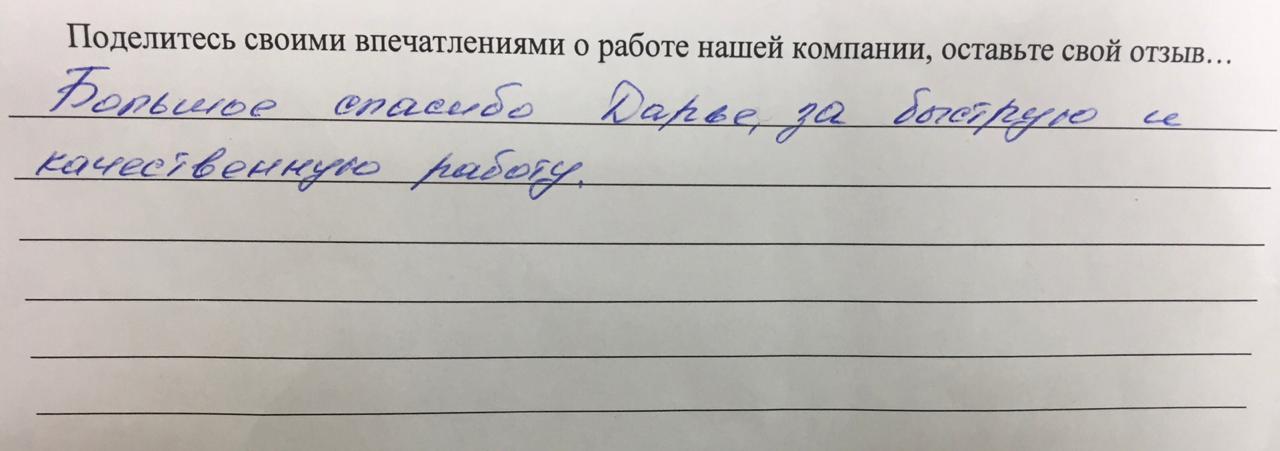 Поделитесь своими впечатлениями о работе нашей компании, оставьте свой отзыв…
Большое спасибо Дарье, за быструю и
качественную работу.